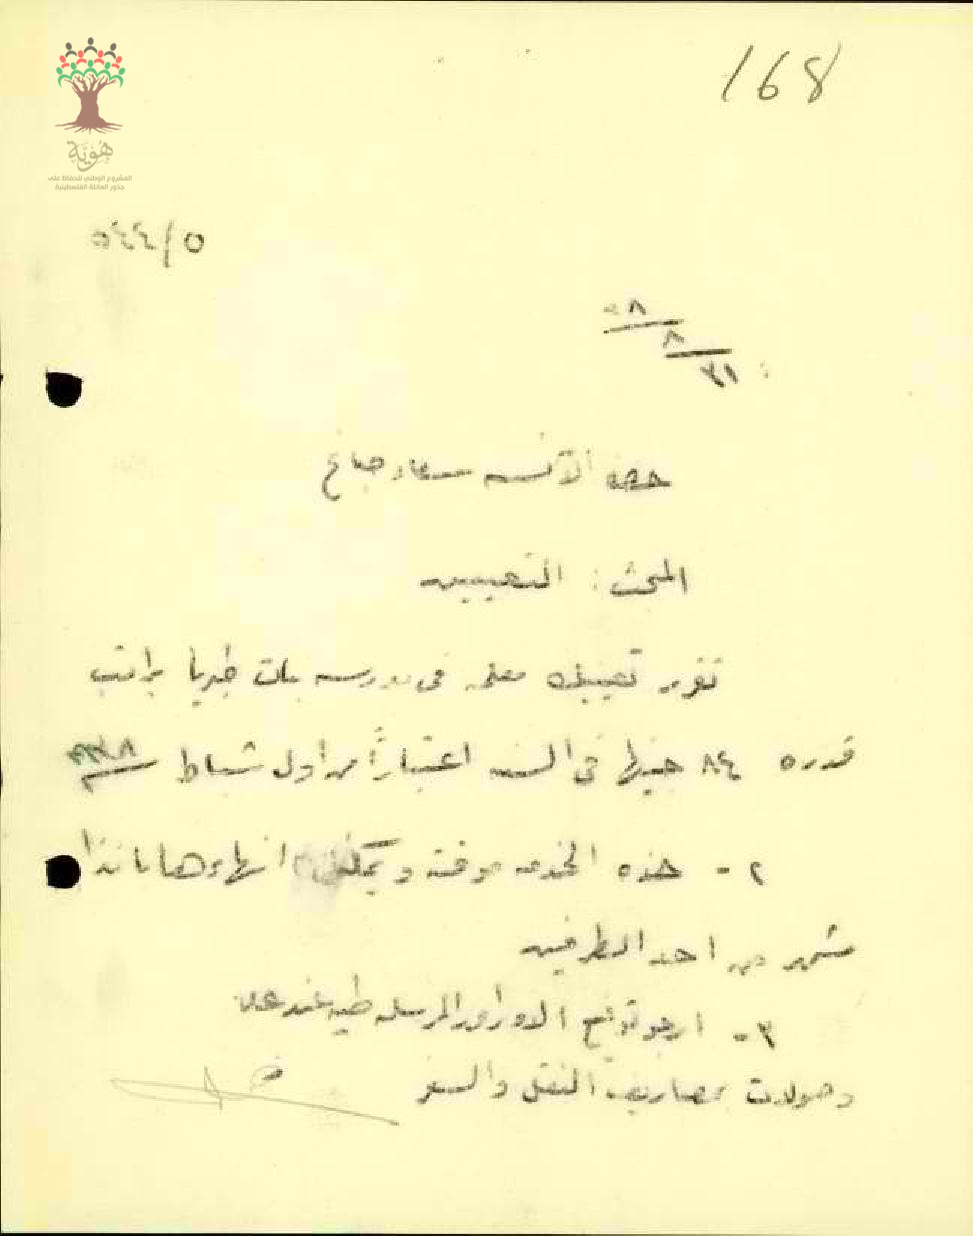 168
هُوِيَّة
المشروع الوطني للحفاظ على
جذور العائلة الفلسطينية
٥/٥٤٤
٣١/٨/٣٨
حضرة الآنسه سعاد صباغ
المبحث : التعيين
تقرر تعيينك معلمه في مدرسه بنات طبريا براتب
قدره ٨٤ جنيها في السنه اعتباراً من اول شباط ٩٣٨
٢ - هذه الخدمه موقته ويمكن انهاءها بانذار
شهر من احد الطرفين
٣ - ارجو توقيع الاوراق المرسله طيه
بمصاريف النقل والسفر